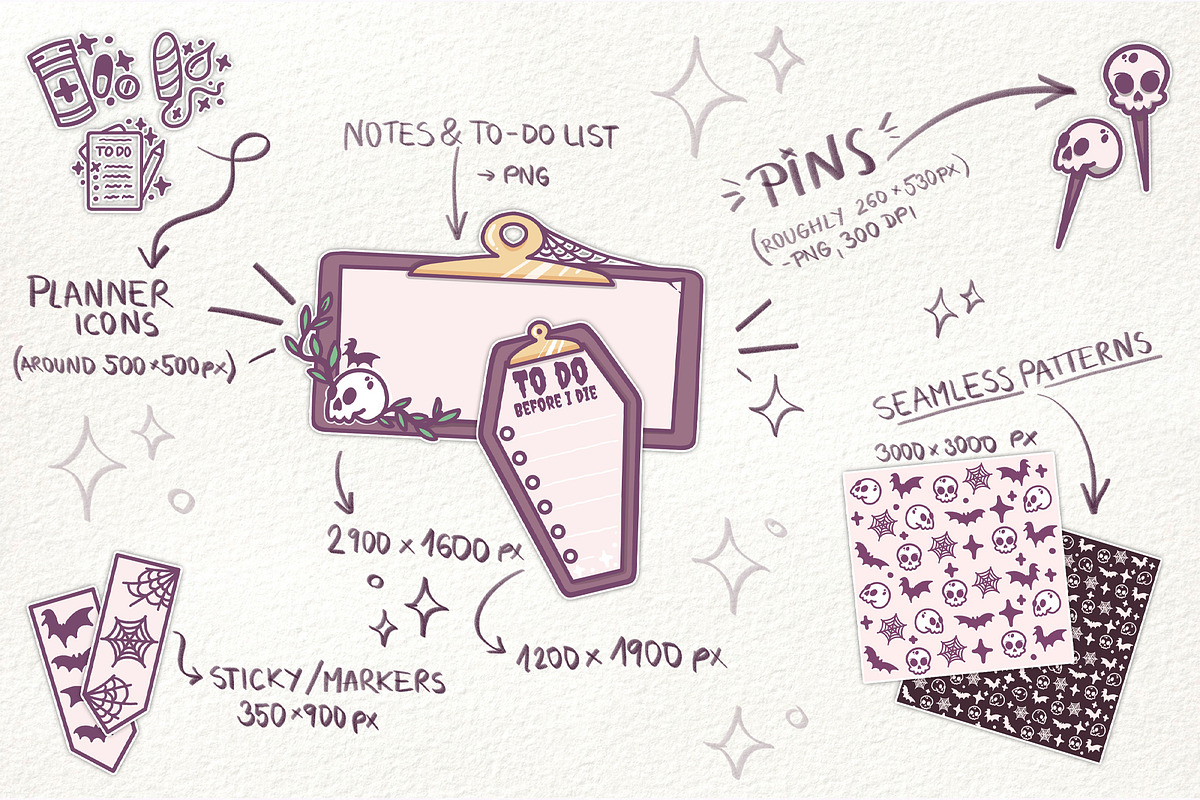 TO DO
PLANNER
ICONS
(AROUND 500×500 PX)
NOTES & TO-DO LIST
→ PNG
TO DO
BEFORE I DIE
2900 × 1600 PX
1200 × 1900 PX
STICKY/MARKERS
350×900 PX
PINS
(ROUGHLY 260×530PX)
-PNG, 300 DPI
SEAMLESS PATTERNS
3000×3000 PX